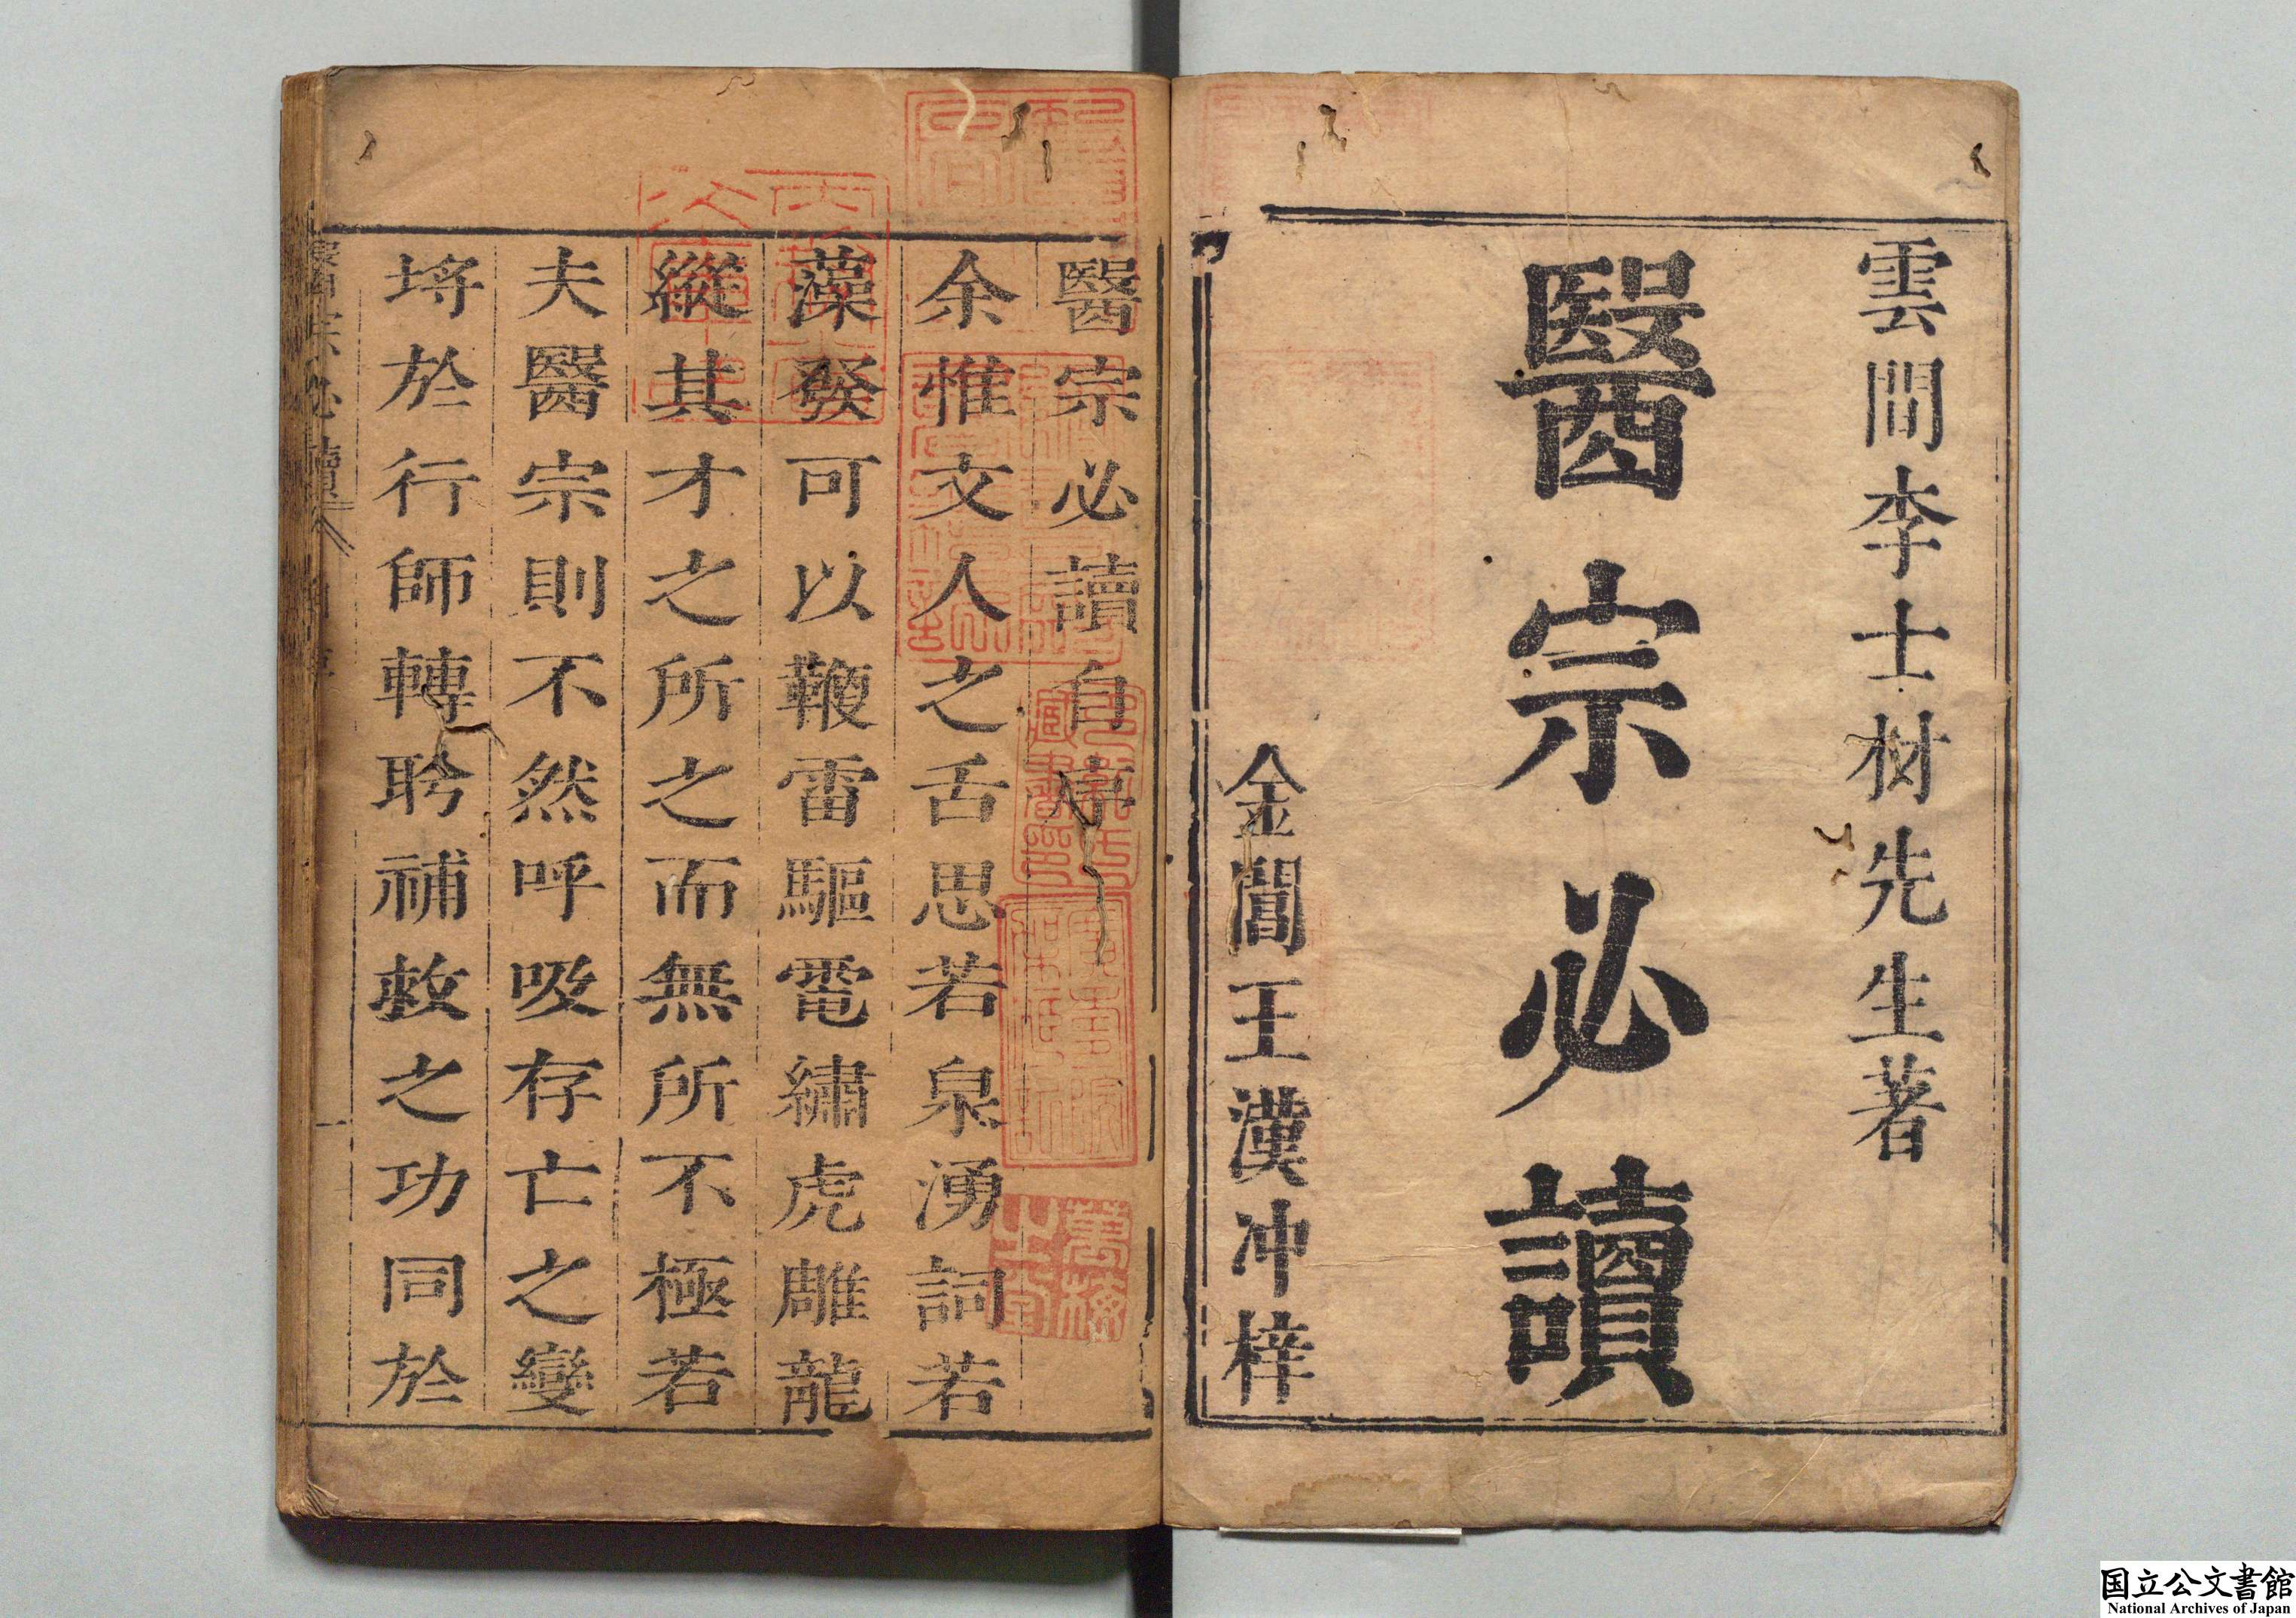 雲間李士材先生著
醫宗必讀
金閶王漢冲梓
醫宗必讀自序
余惟文人之舌思若泉湧詞若
藻發可以鞭雷驅電繡虎雕龍
縱其才之所之而無所不極若
夫醫宗則不然呼吸存亡之變
埒於行師轉盻補救之功同於
醫宗必讀
一
国立公文書館
National Archives of Japan